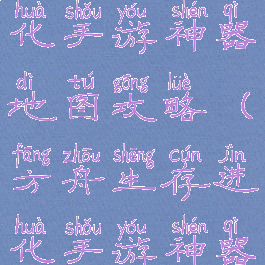 huà shǒu yóu shén qì
化手游神器
dì tú gōng lüè
地图攻略（
fāng zhōu shēng cún jìn
方舟生存进
huà shǒu yóu shén qì
化手游神器